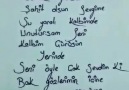 Sahil olsun Sevgine
Şu yaralı kalbimde
Unutursam Seni
Kalbim Gürüsün
Yerinde
Seni öyle Çok Sevdim ki
Bak gözlerimin içine